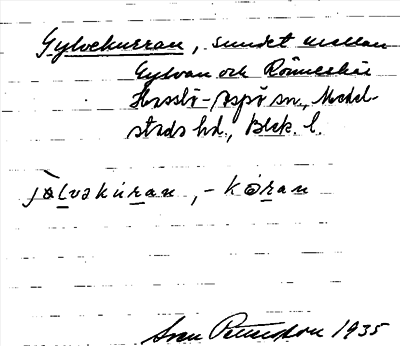 Gylvekurran, sundet mellan
Gylvan och Rönneskär
Hasslö-Aspö sn., Medel-
stads hd., Blek. l.
jàlvakúran, - kóran
Sven Petersson 1935